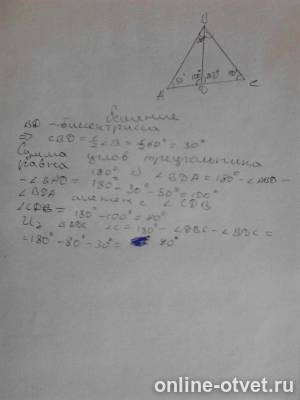 B
A
C
D
Решение
BD - биссектриса
⇒ CBD = ½∠B = ½60° = 30°
Сумма углов треугольника
равна 180° ⇒ ∠BDA = 180° - ∠ABD -
- ∠BAD = 180° - 30° - 50° = 100°
∠BDA смежен с ∠CDB
∠CDB = 180° - 100° = 80°
Из ∠BDC ∠C = 180° - ∠DBC - ∠BDC =
= 180° - 80° - 30° = 80°
online-otvet.ru